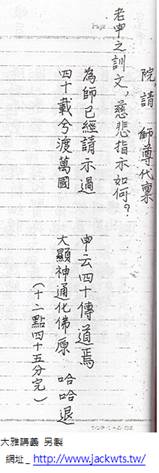 院，請 師尊代稟
老申之訓文，慈悲指示如何？
為師已經請示過 申云四十傳道焉
四十載兮渡萬國 大顯神通化佛原 哈哈退
（十二點四十五分完）
大雅講義 另製
網址_ http://www.jackwts.tw/